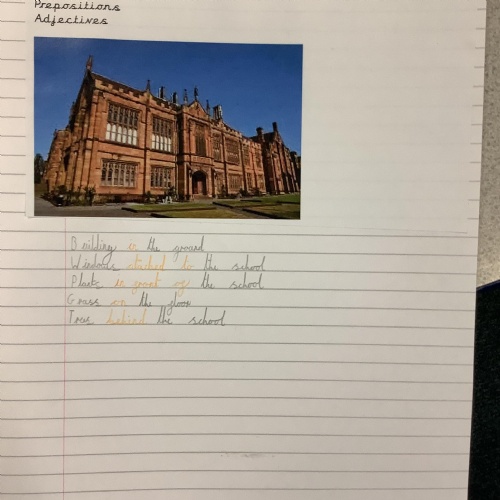 Prepositions
Adjectives
Building in the ground
Windows atached to the school
Plants in front of the school
Grass on the floor
Trees behind the school